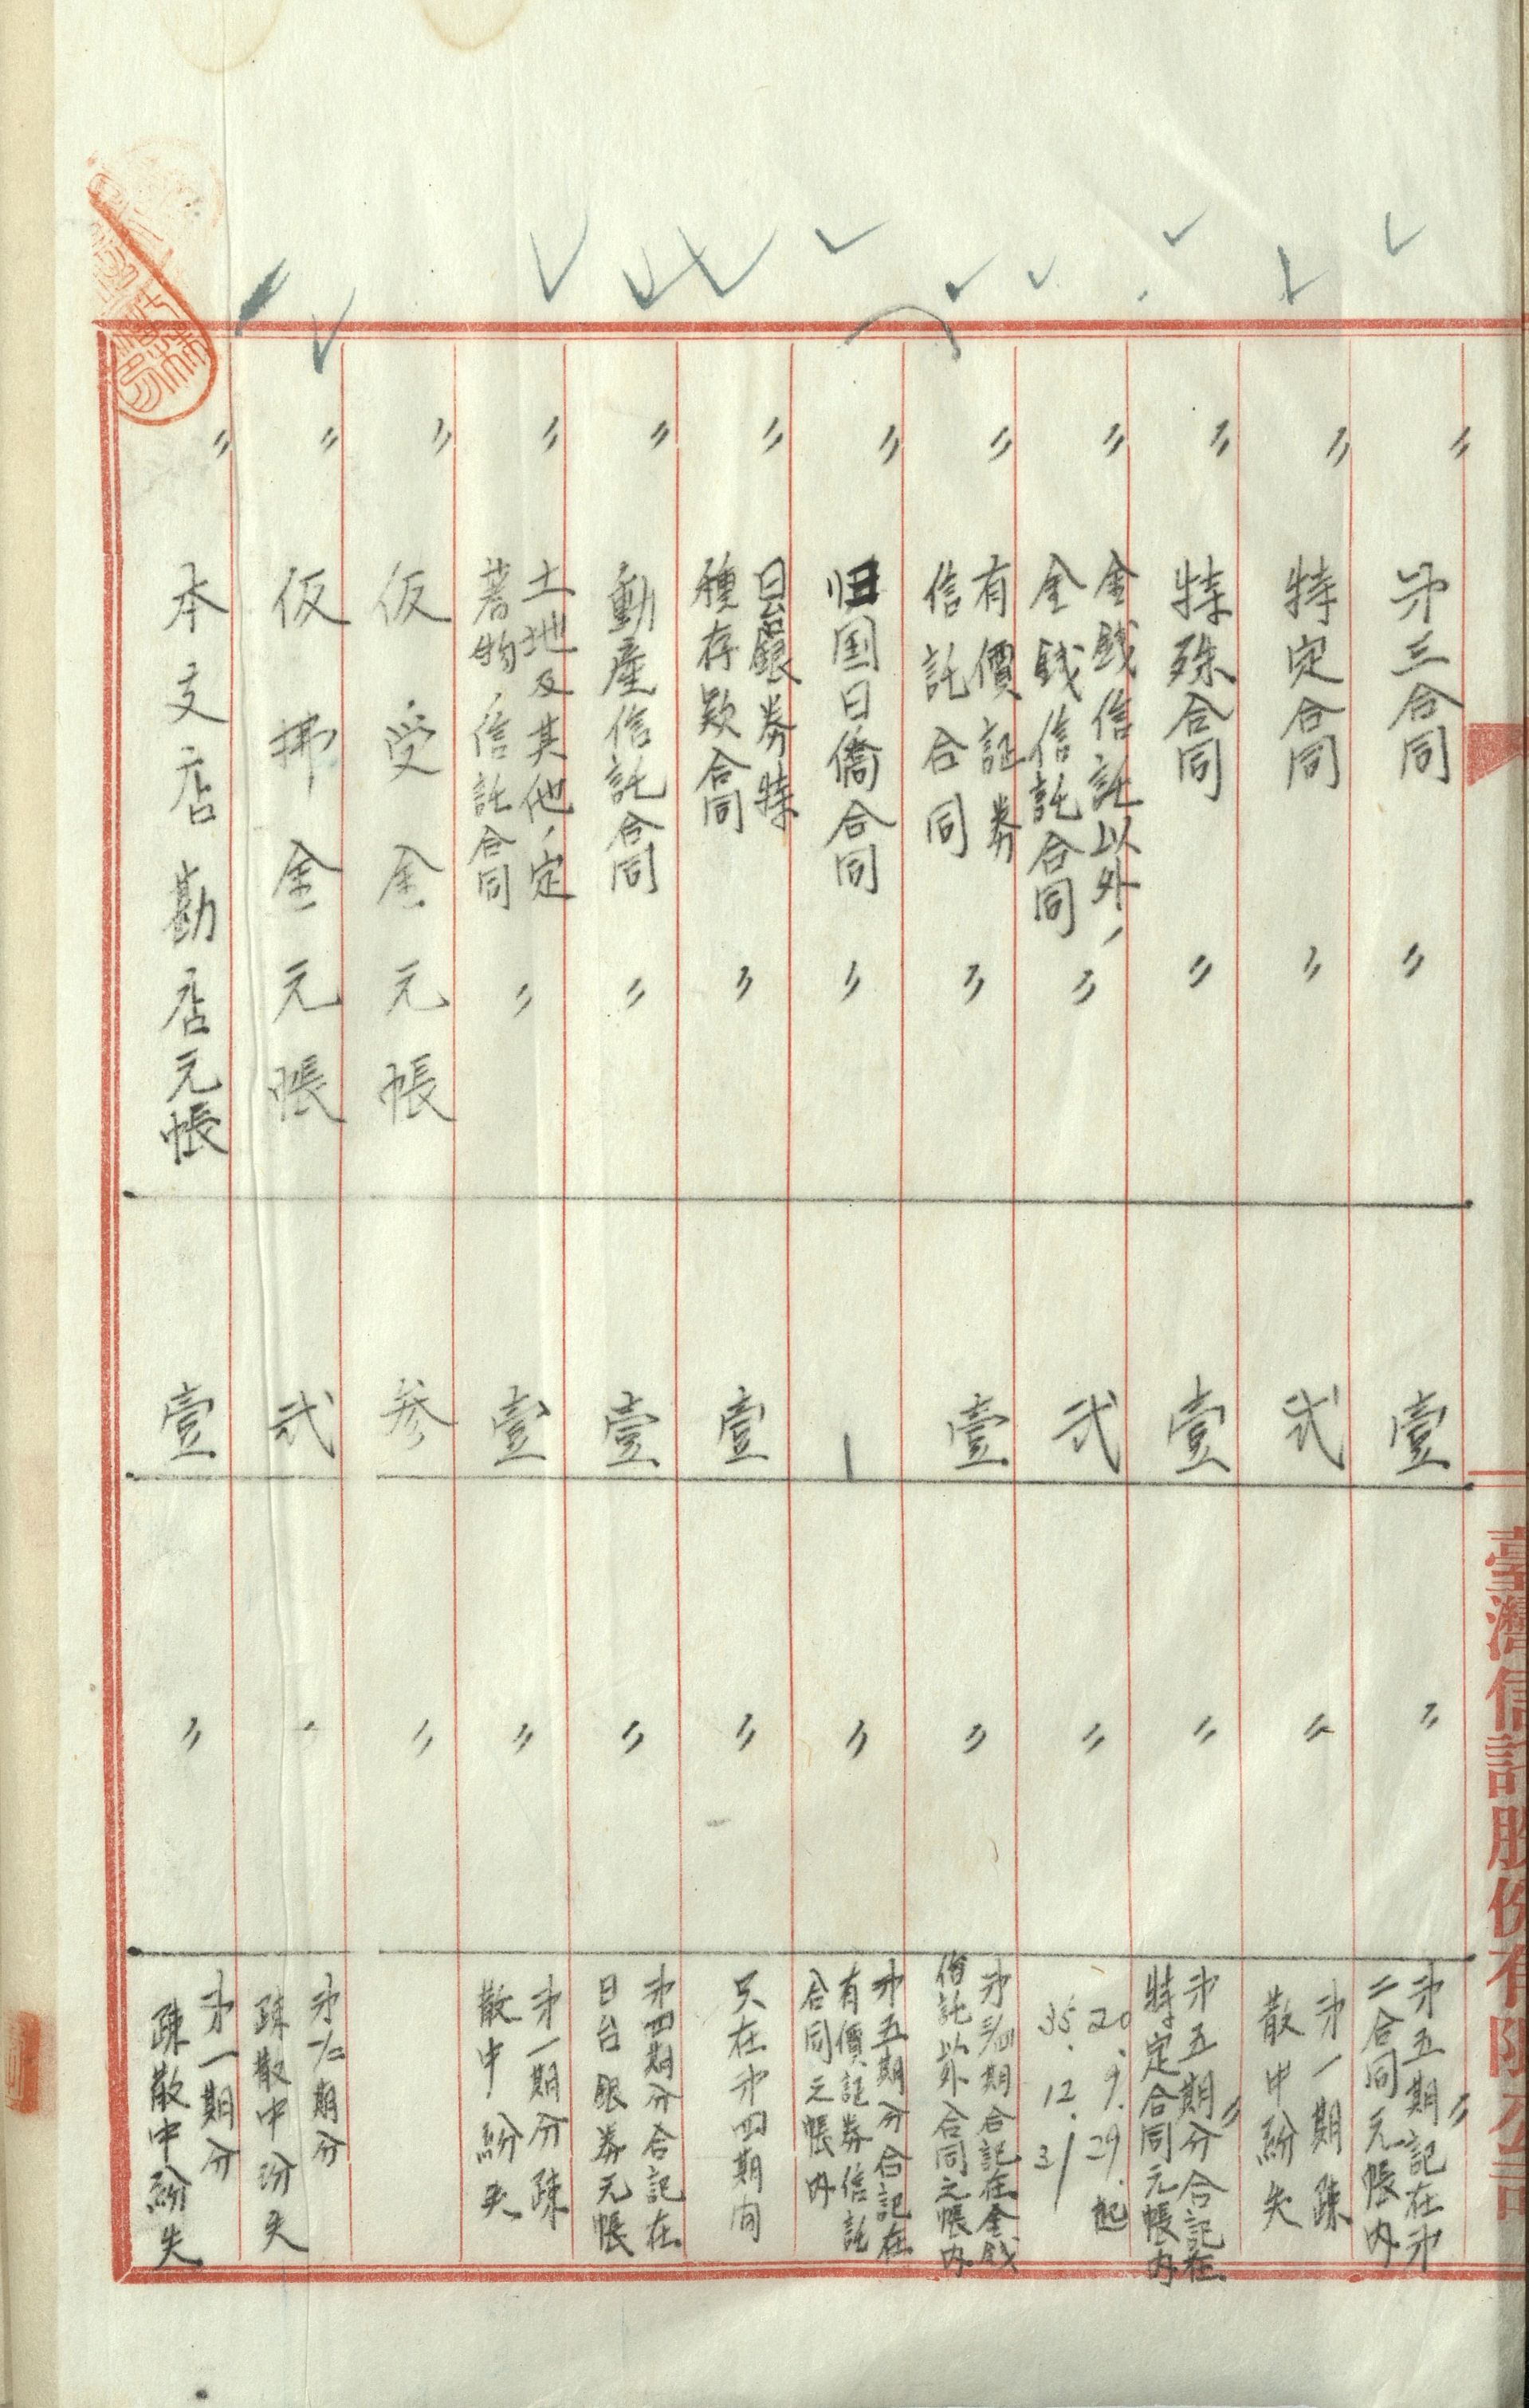 臺灣信託股份有限公司
〃 第三合同 〃 壹 〃 第五期記在第
二合同元帳內
〃 特定合同 〃 弍 〃 第一期疎
散中紛失
〃 特殊合同 〃 壹 〃 第五期分合記在
特定合同元帳內
〃 金銭信託以外ノ
金銭信託合同 〃 弍 〃 20.9.29.起
35.12.31
〃 有價証券
信託合同 〃 壹 〃 期合記在金銭
信託以外合同元帳內
〃 归国日僑合同 〃 〡 〃 第五期分合記在
有價証券信託
合同元帳內
〃 日台銀券特
種存款合同 〃 壹 〃 只在第四期間
〃 動產信託合同 〃 壹 〃 第四期分合記在
日台銀券元帳
〃 土地及其他ノ定
著物ノ信託合同 〃 壹 〃 第一期分疎
散中紛失
〃 仮受金元帳 参 〃
〃 仮拂金元帳 弍 〃 期分
疎散中紛失
〃 本支店勘店元帳 壹 〃 第一期分
疎散中紛失